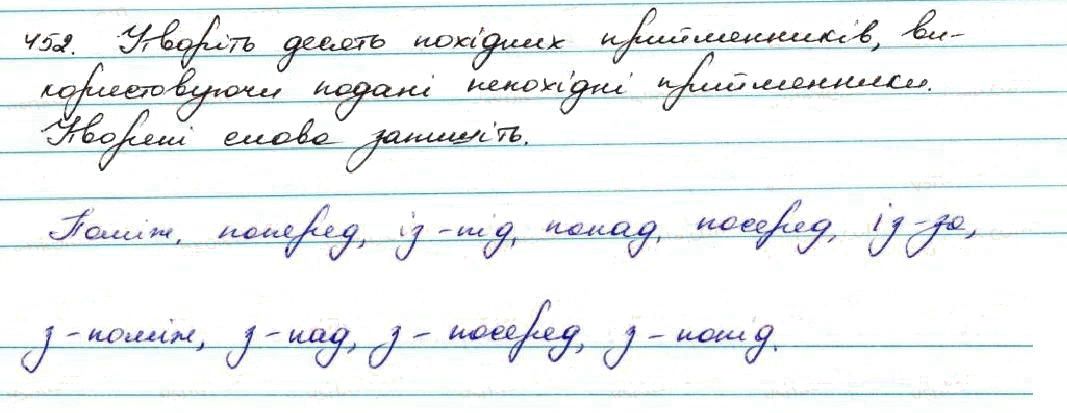 452. Утворіть десять похідних прийменників, ви-
користовуючи подані непохідні прийменники.
Утворені слова запишіть.
Поміж, поперед, із-під, понад, посеред, із-за,
з-поміж, з-над, з-посеред, з-попід.